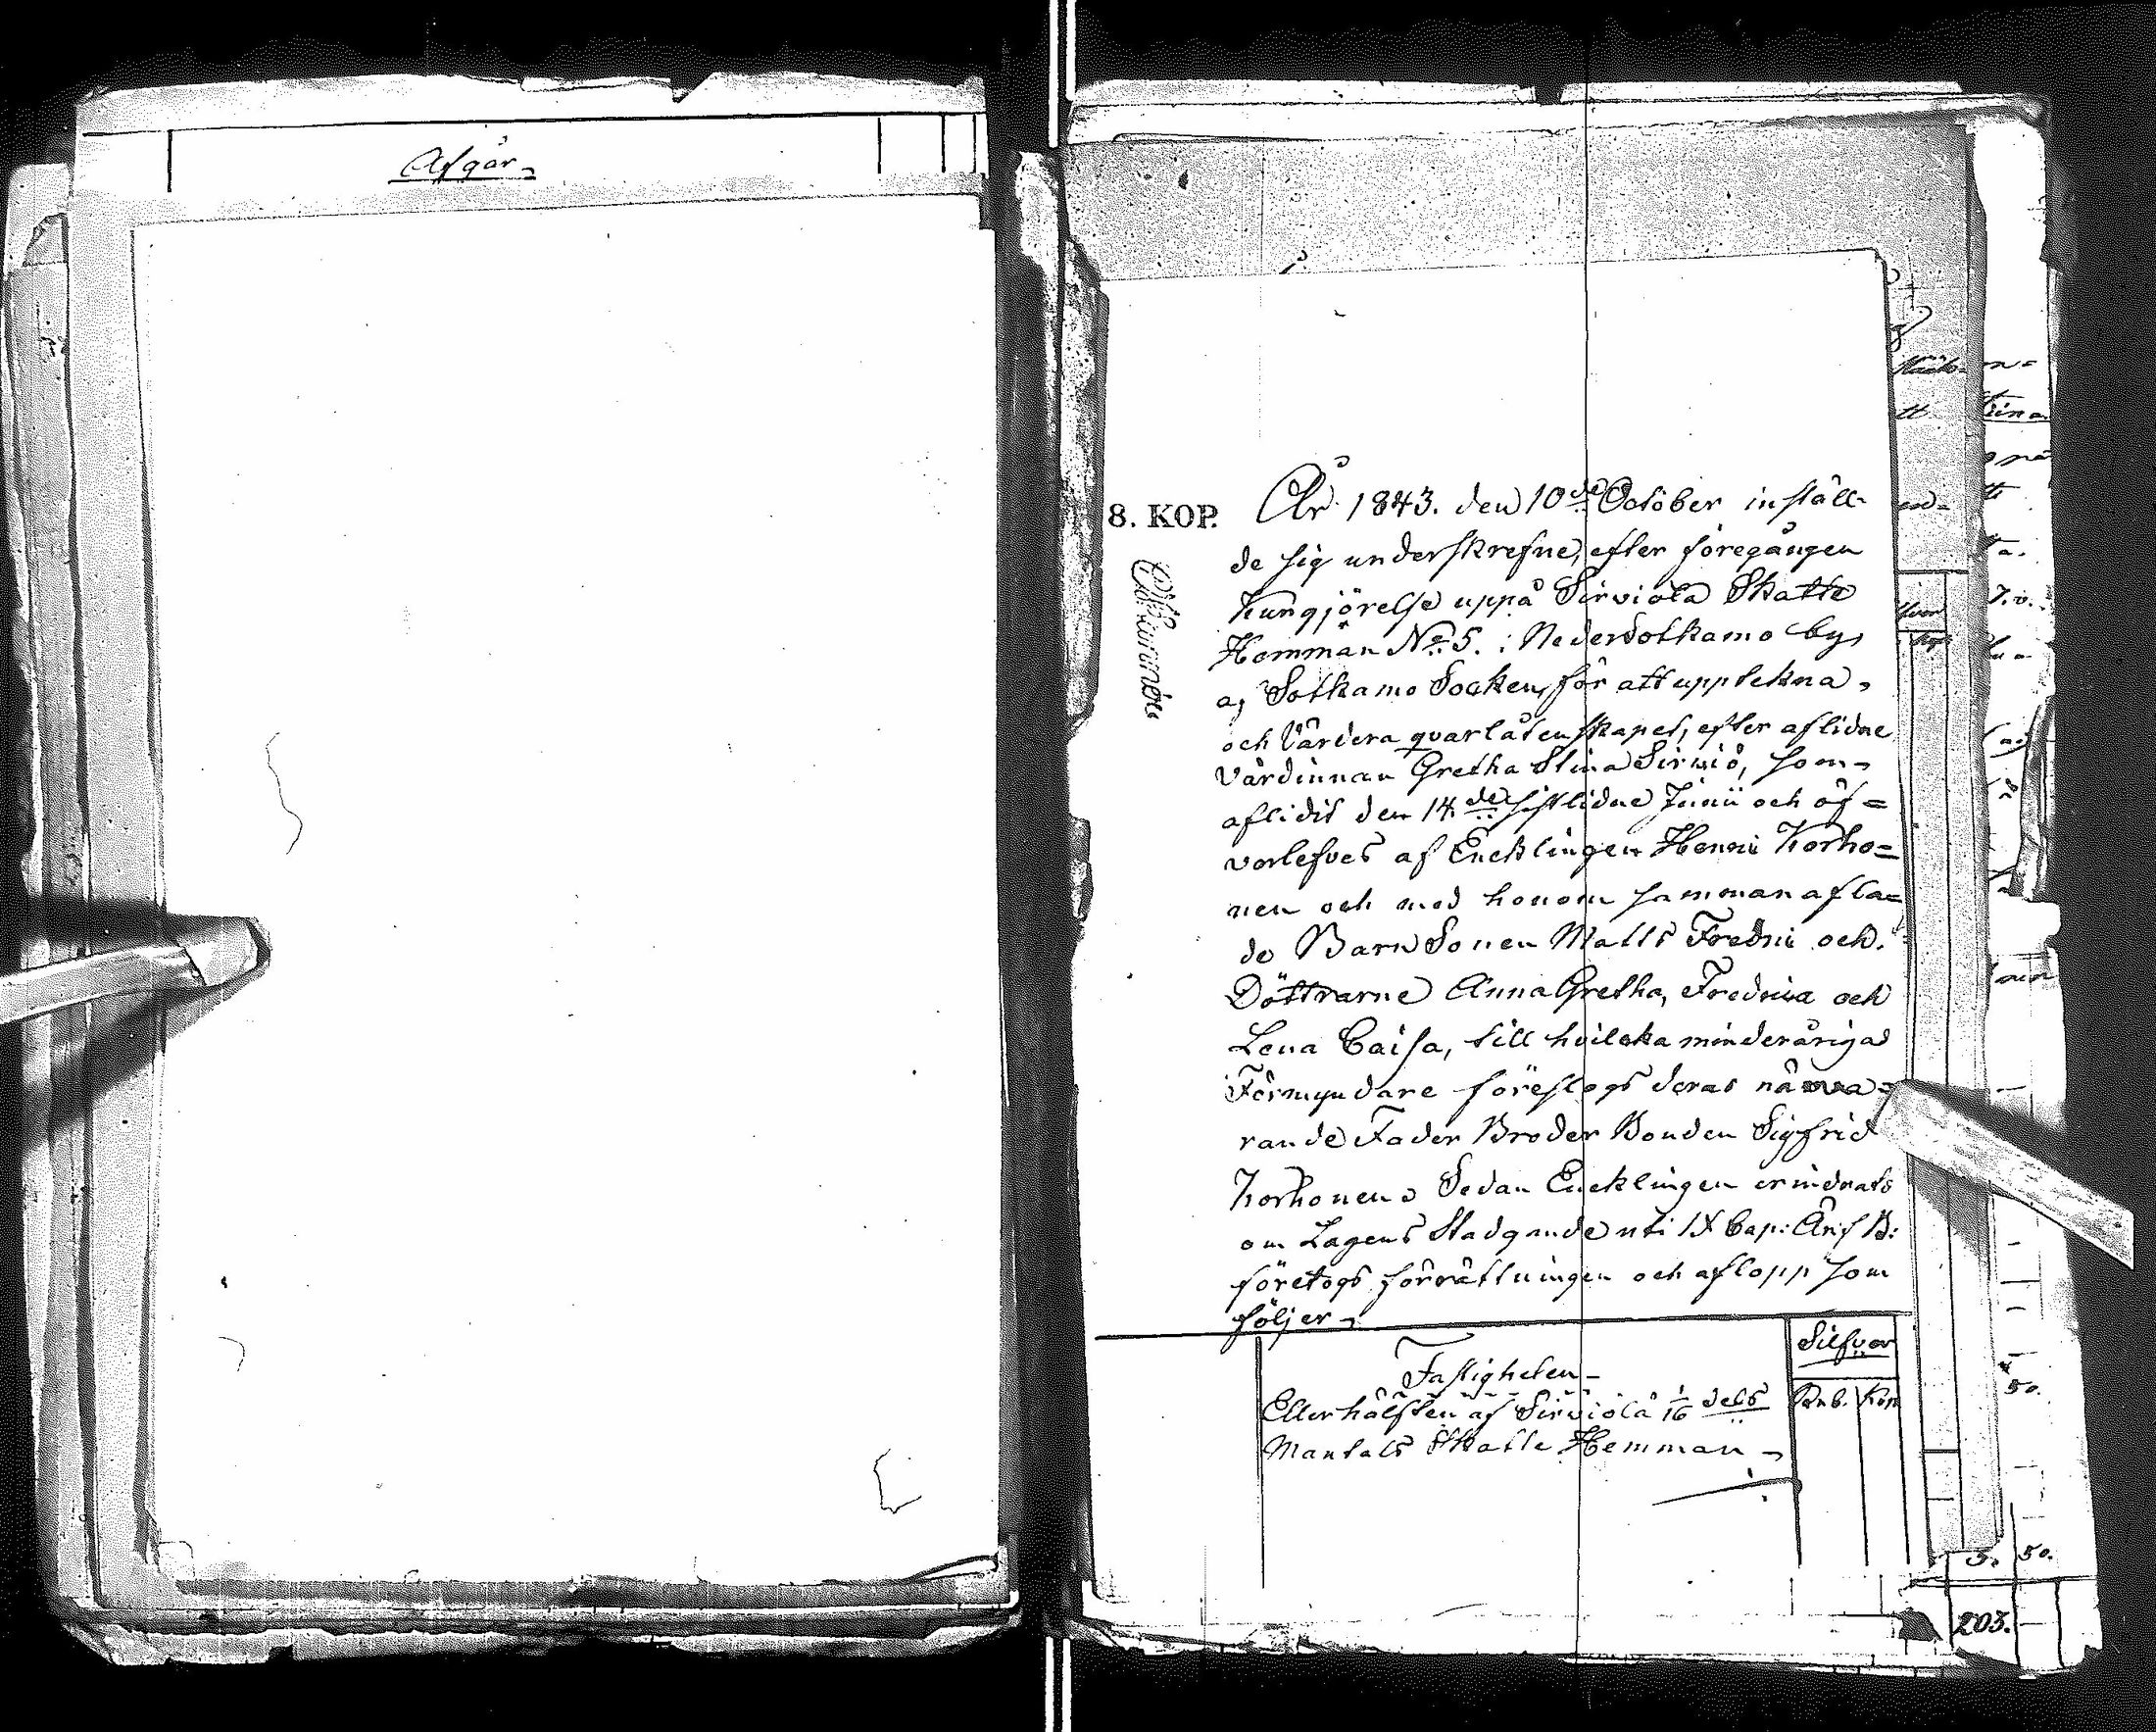 Afgår
8. KOP.
År 1843. den 10de October inställ-
de sig underskrefne, efter föregången
Kungjörelse uppå Sirviöla Skatte
Hemman No 5. i Nedersotkamo by,
af Sotkamo Socken, för att upptekna,
och Värdera quarlåtenskapet, efter aflidne
Värdinnan Gretha Stina Sirviö, som
aflidit den 14de sistlidne Junii och öf=
verlefves af Encklingen Henric Korho=
nen och med honom sammanafla=
de Barn Sonen Matts Fredric och
Döttrarne Anna Gretha, Fredrica och
Lena Caisa, till hvilcka minderåriga
Förmyndare föreslogs deras närva=
rande Fader Broder Bonden Sigfrid
Korhonen. Sedan Encklingen erindrats
om Lagens Stadgande uti IX Cap: Ärf B:
företogs förrättningen och aflopp som
följer
Silfver
Fastigheten
Rub. Kop
Eller hälften af Sirviölä 1/16 dels
Mantals Skatte Hemman
5. 50.
203.